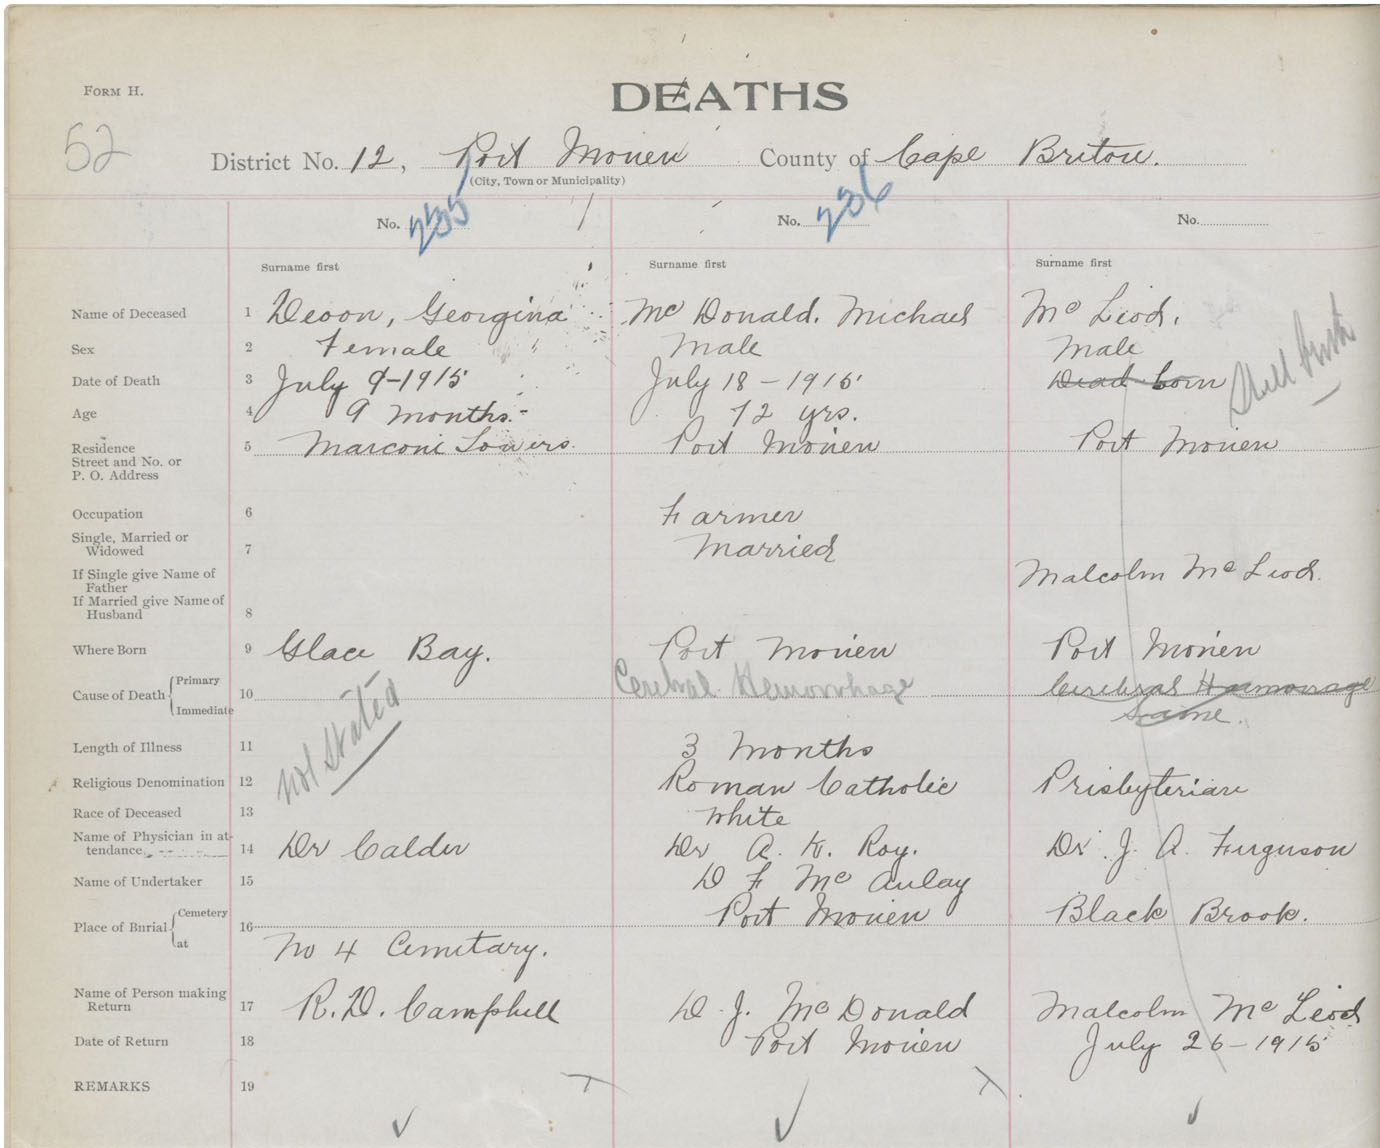 FORM H.
DEATHS
52
District No. 12, Port Morien County of Cape Briton.
(City, Town or Municipality)
No. 235 No. 236 No.
Surname first Surname first Surname first
Name of Deceased 1 Devon, Georgina Mc Donald. Michael Mc Leod.
Sex 2 Female Male Male
Date of Death 3 July 9-1915 July 18-1915 Dead born Still birth
Age 4 9 months.- 72 yrs.
Residence 5 Marconi Towers. Port Morien Port Morien
Street and No. or
P. O. Address
Occupation 6 Farmer
Single, Married or
Widowed 7 Married
If Single give Name of
Father Malcolm Mc Leod.
If Married give Name of
Husband 8
Where Born 9 Glace Bay. Port Morien Port Morien
Cause of Death Primary 10 not stated Cerebral Hemorrhage Cerebral Haemorrage
Immediate Same.
Length of Illness 11 3 Months
Religious Denomination 12 Roman Catholic Presbyterian
Race of Deceased 13 White
Name of Physician in at-
tendance 14 Dr Calder Dr A. K. Roy. Dr. J. A. Ferguson
Name of Undertaker 15 D F Mc Aulay
Place of Burial Cemetery 16 Port Morien Black Brook.
at No 4 Cemetary.
Name of Person making
Return 17 R. D. Campbell D. J. McDonald Malcolm Mc Leod
Date of Return 18 Port Morien July 26-1915
REMARKS 19